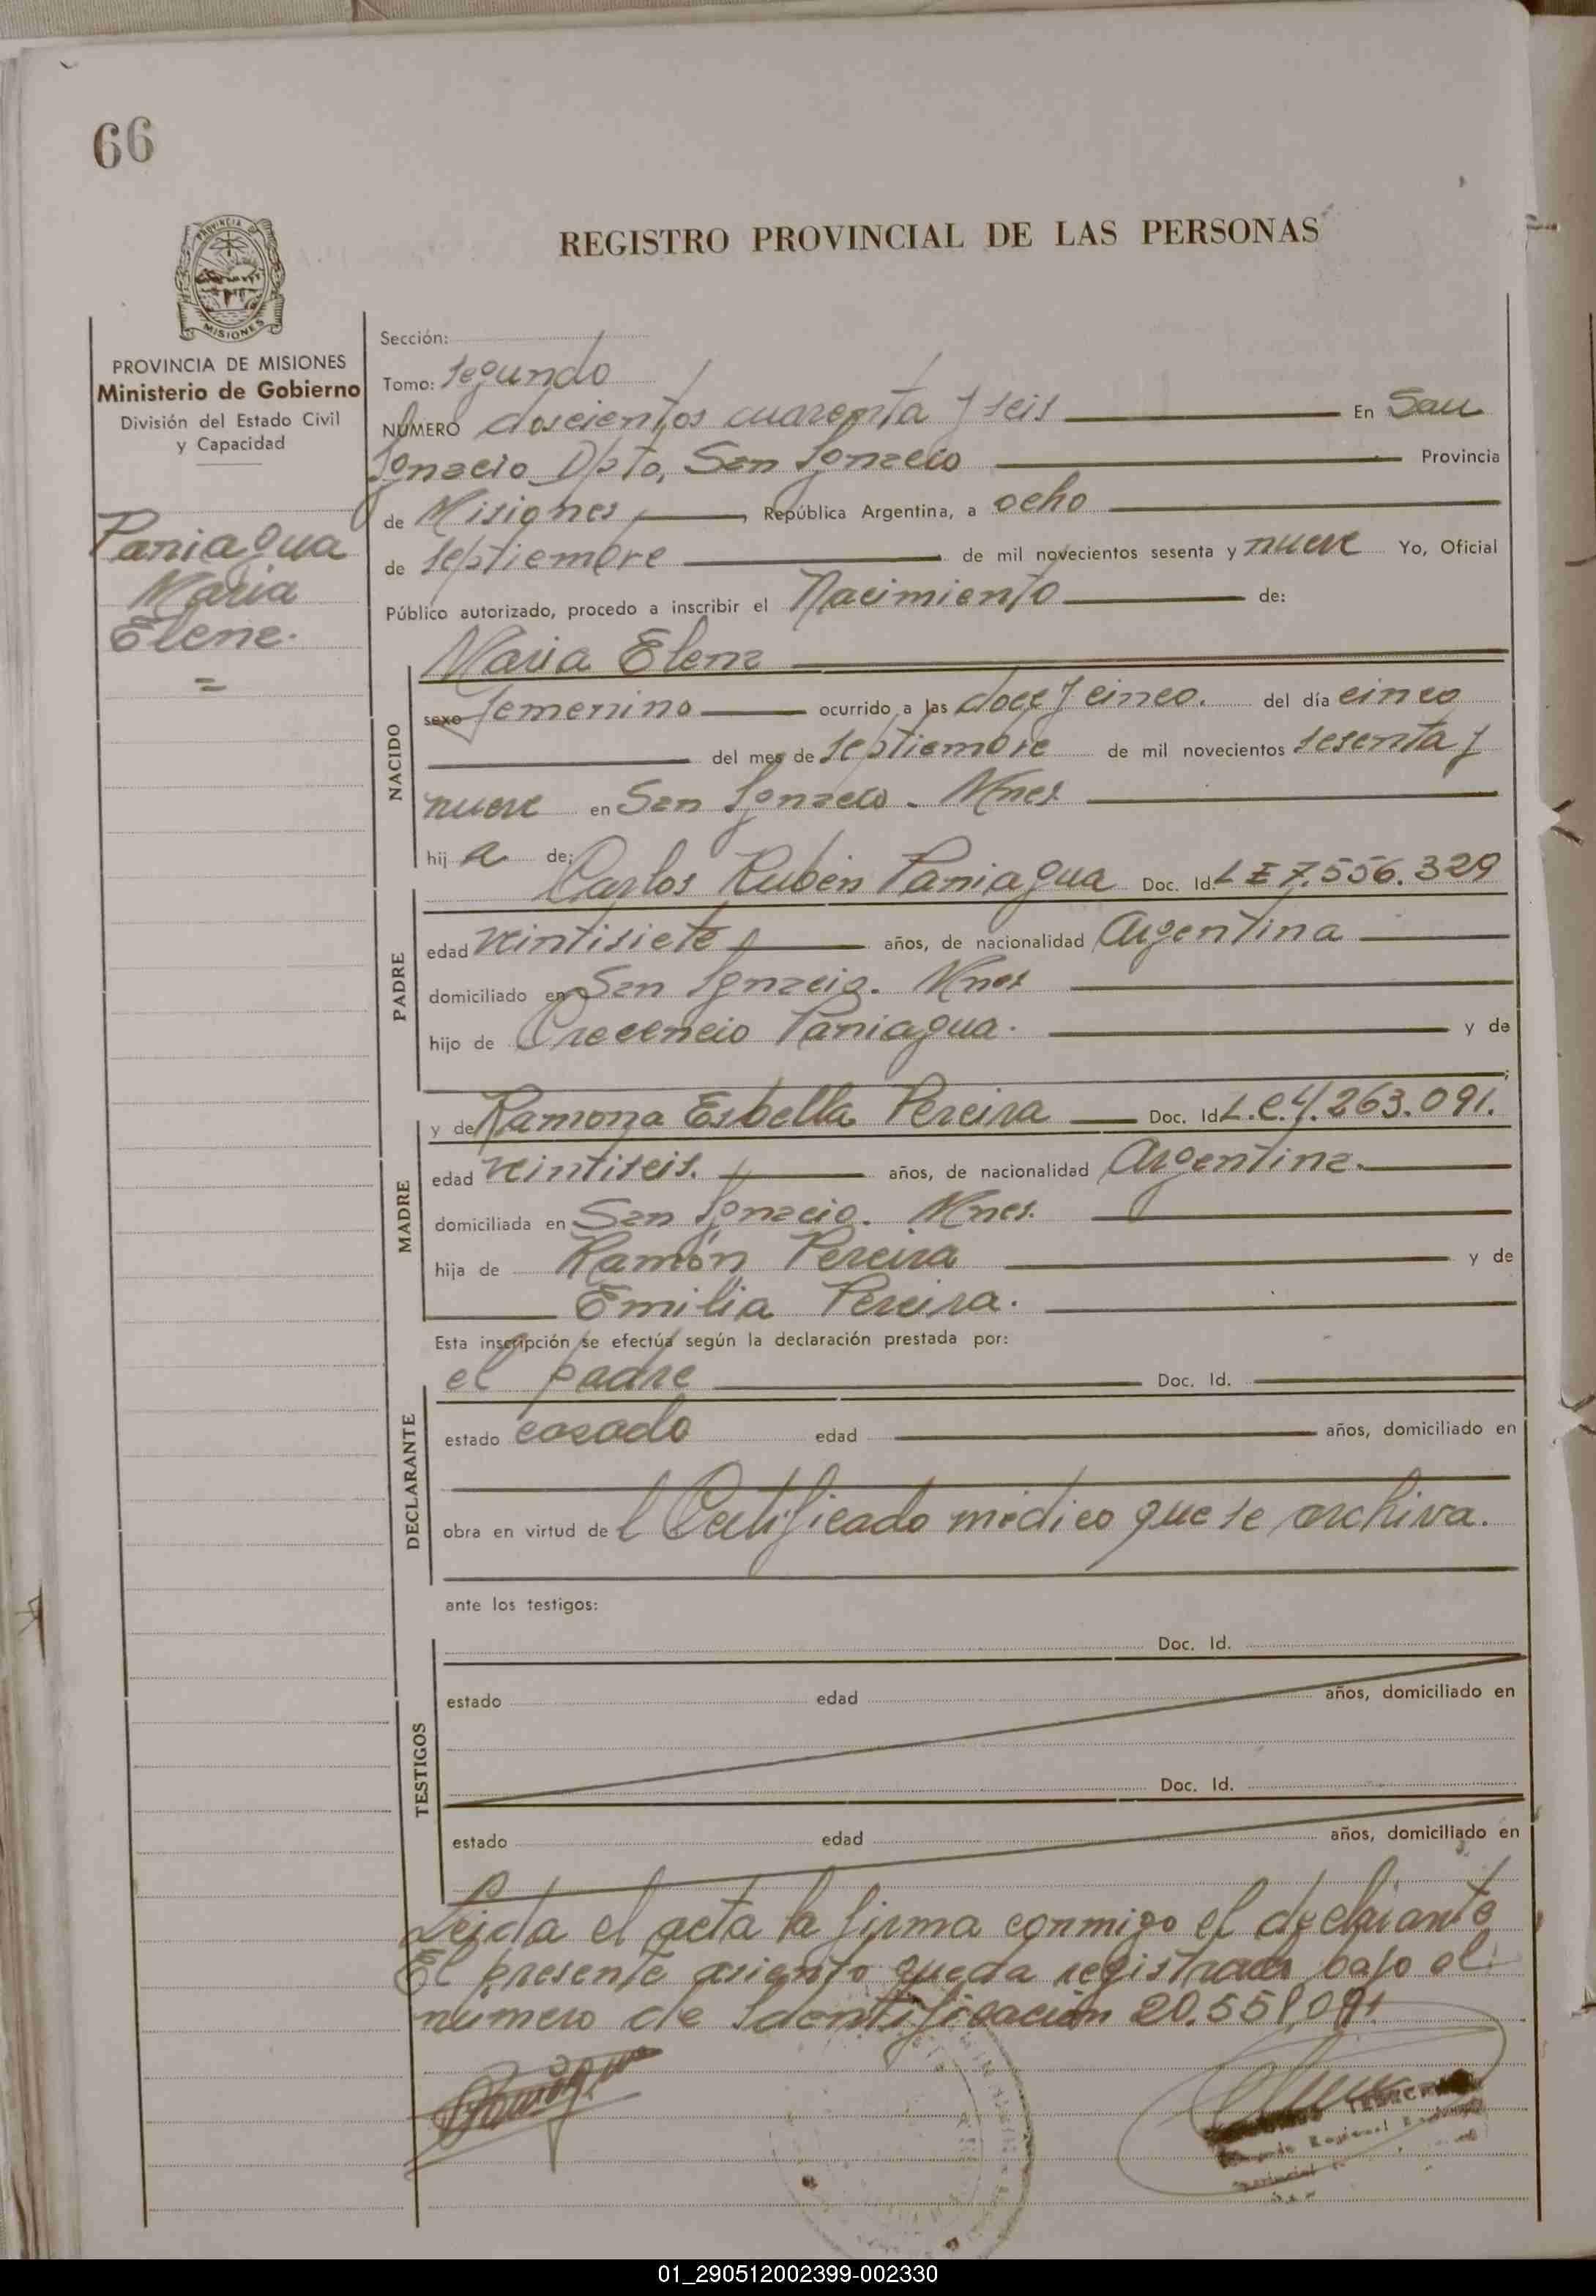 66
PROVINCIA DE
MISIONES
REGISTRO PROVINCIAL DE LAS PERSONAS
PROVINCIA DE MISIONES
Ministerio de Gobierno
División del Estado Civil
y Capacidad
Paniagua
Maria
Elena.
Sección:
Tomo: Segundo
NÚMERO doscientos cuarenta y seis En San
Ignacio Dpto. San Ignacio Provincia
de Misiones, República Argentina, a ocho
de septiembre de mil novecientos sesenta y nueve Yo, Oficial
Público autorizado, procedo a inscribir el Nacimiento de:
Maria Elena
NACIDO
sexo femenino ocurrido a las doce y cinco. del día cinco
del mes de septiembre de mil novecientos sesenta y
nueve en San Ignacio. Mnes
hij a de:
Carlos Rubén Paniagua Doc. Id. L E 7.556.329
PADRE
edad veintisiete años, de nacionalidad Argentina
domiciliado en San Ignacio. Mnes
hijo de Crecencio Paniagua. y de
y de Ramona Esbella Pereira Doc. Id. L.C.4.263.091.
MADRE
edad veintiseis. años, de nacionalidad Argentina.
domiciliada en San Ignacio. Mnes.
hija de Ramón Pereira y de
Emilia Pereira.
Esta inscripción se efectúa según la declaración prestada por:
el padre Doc. Id.
DECLARANTE
estado casado edad años, domiciliado en
obra en virtud de l Certificado médico que se archiva.
ante los testigos:
Doc. Id.
TESTIGOS
estado edad años, domiciliado en
Doc. Id.
estado edad años, domiciliado en
Leida el acta la firma conmigo el declarante
El presente asiento queda registrado bajo el
número de Identificación 20.551.091
01_290512002399-002330